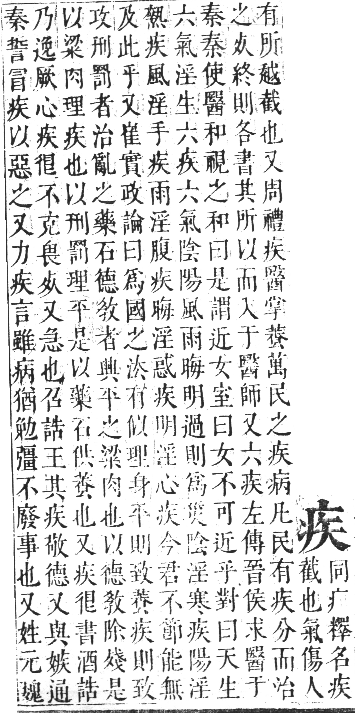 疾
同疒釋名疾
截也氣傷人
有所越截也又周禮疾醫掌養萬民之疾病凡民有疾分而治
之死終則各書其所以而入于醫師又六疾左傳晉侯求醫于
秦秦使醫和視之和曰是謂近女室曰女不可近乎對曰天生
六氣淫生六疾六氣陰陽風雨晦明過則爲災陰淫寒疾陽淫
熱疾風淫手疾雨淫腹疾晦淫惑疾明淫心疾今君不節能無
及此乎又崔實政論曰爲國之法有似理身平則致養疾則致
攻刑罰者治亂之藥石德敎者興平之粱肉也以德敎除殘是
以粱肉理疾也以刑罰理平是以藥石供養也又疾很書酒誥
乃逸厥心疾很不克畏死又急也召誥王其疾敬德又與嫉通
秦誓冒疾以惡之又力疾言雖病猶勉彊不廢事也又姓元魏